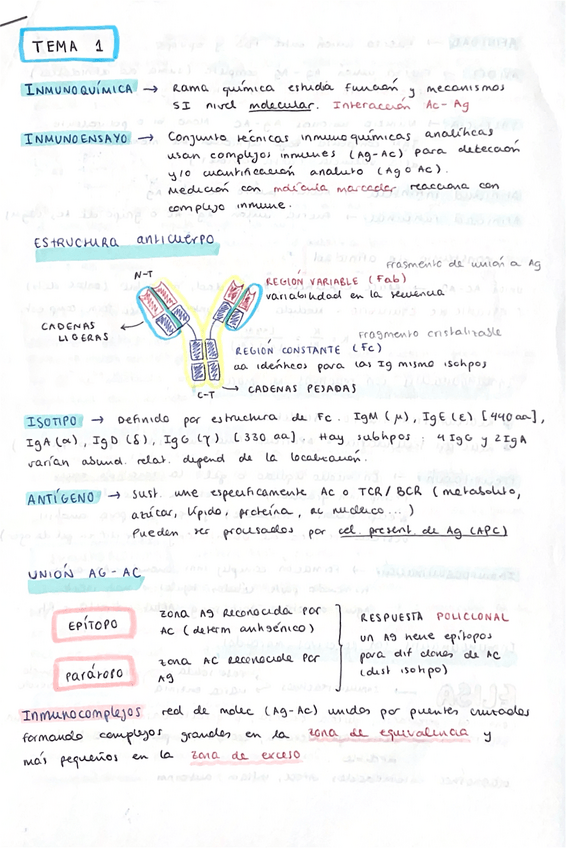 TEMA 1
INMUNOQUÍMICA → Rama química estudia función y mecanismos
SI nivel molecular. Interacción Ac-Ag
INMUNOENSAYO → Conjunto técnicas inmunoquímicas analíticas
usan complejos inmunes (Ag-Ac) para detección
y/o cuantificación analito (Ag o Ac).
Medición con molécula marcador reacciona con
complejo inmune.
ESTRUCTURA anticuerpo
N-T
fragmento de unión a Ag
REGIÓN VARIABLE (Fab)
variabilidad en la secuencia
CADENAS
LIGERAS
fragmento cristalizable
REGIÓN CONSTANTE (Fc)
aa idénticos para las Ig mismo isotipos
C-T → CADENAS PESADAS
ISOTIPO → Definido por estructura de Fc. IgM (μ), IgE (ε) [440 aa],
IgA (α), IgD (δ), IgG (γ) [330 aa]. Hay subtipos: 4 IgG y 2 IgA
varían abund. relat. depend de la localización.
ANTÍGENO → Sust. une específicamente Ac o TCR/BCR (metabolito,
azúcar, lípido, proteína, ac nucleico...)
Pueden ser procesados por cel. present. de Ag (APC)
UNIÓN AG-AC
EPÍTOPO
zona Ag Reconocida por
AC (determ antigénico)
PARÁTOPO
zona AC Reconocida Por
Ag
RESPUESTA POLICLONAL
un Ag tiene epítopos
para dif clones de AC
(dist isotipo)
Inmunocomplejos red de molec (Ag-Ac) unidos por puentes cruzados
formando complejos grandes en la zona de equivalencia y
más pequeños en la zona de exceso